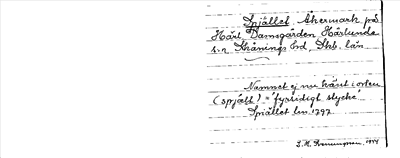 Spjället Åkermark på
Härl. Damsgården Härlunda
s:n Skånings hd, Skb. län
Namnet ej nu känt i orten
(spjäll) = "fyrsidigt stycke"
Spjället lsv. 1797